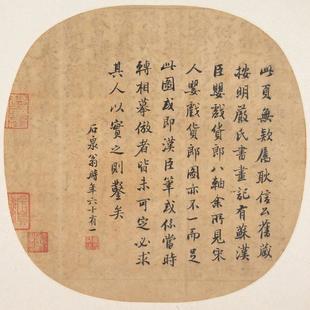 此頁無款屬耿信公舊蔵
按明嚴氏書畫記有蘇漢
臣嬰戲貨郎八軸余所見宋
人嬰戲貨郎圖亦不一而足
此圖或即漢臣筆或係當時
轉相摹倣者皆未可定必求
其人以實之則鑿矣
石泉翁時年六十有一